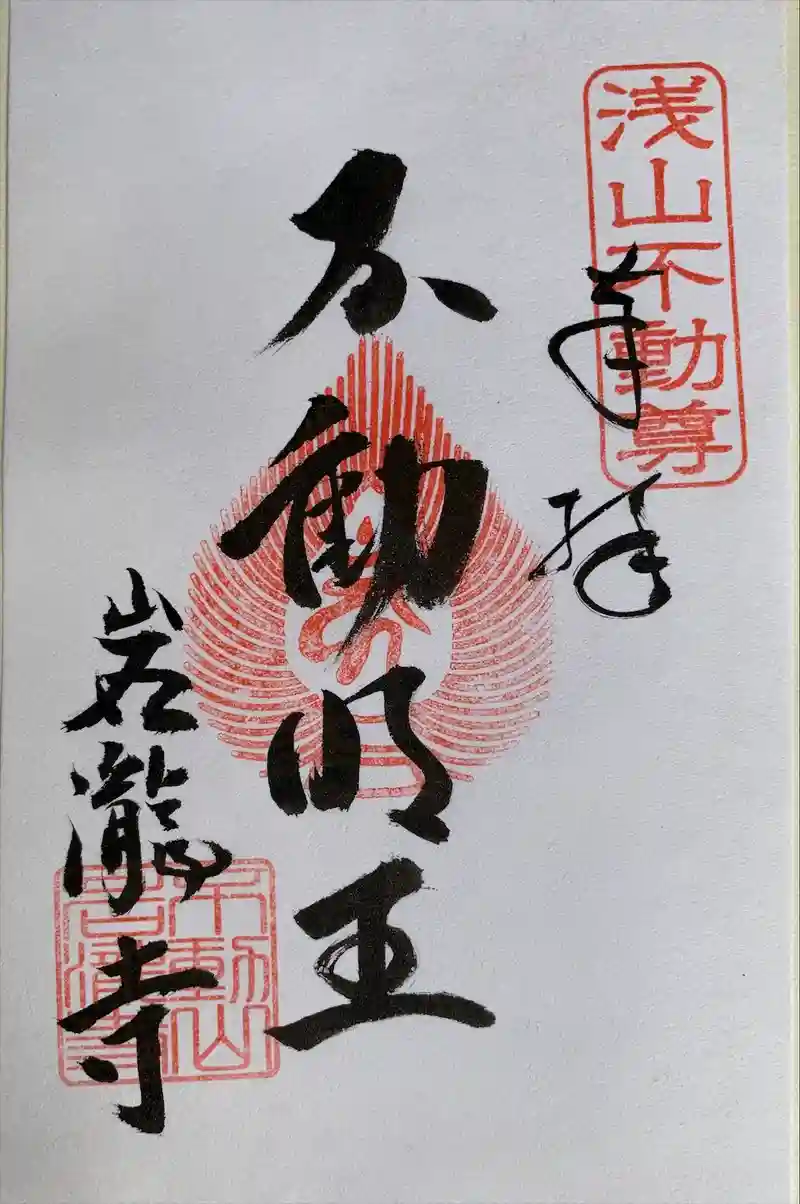 浅山不動尊
奉拝
不動明王
岩瀧寺
不動山
岩瀧寺